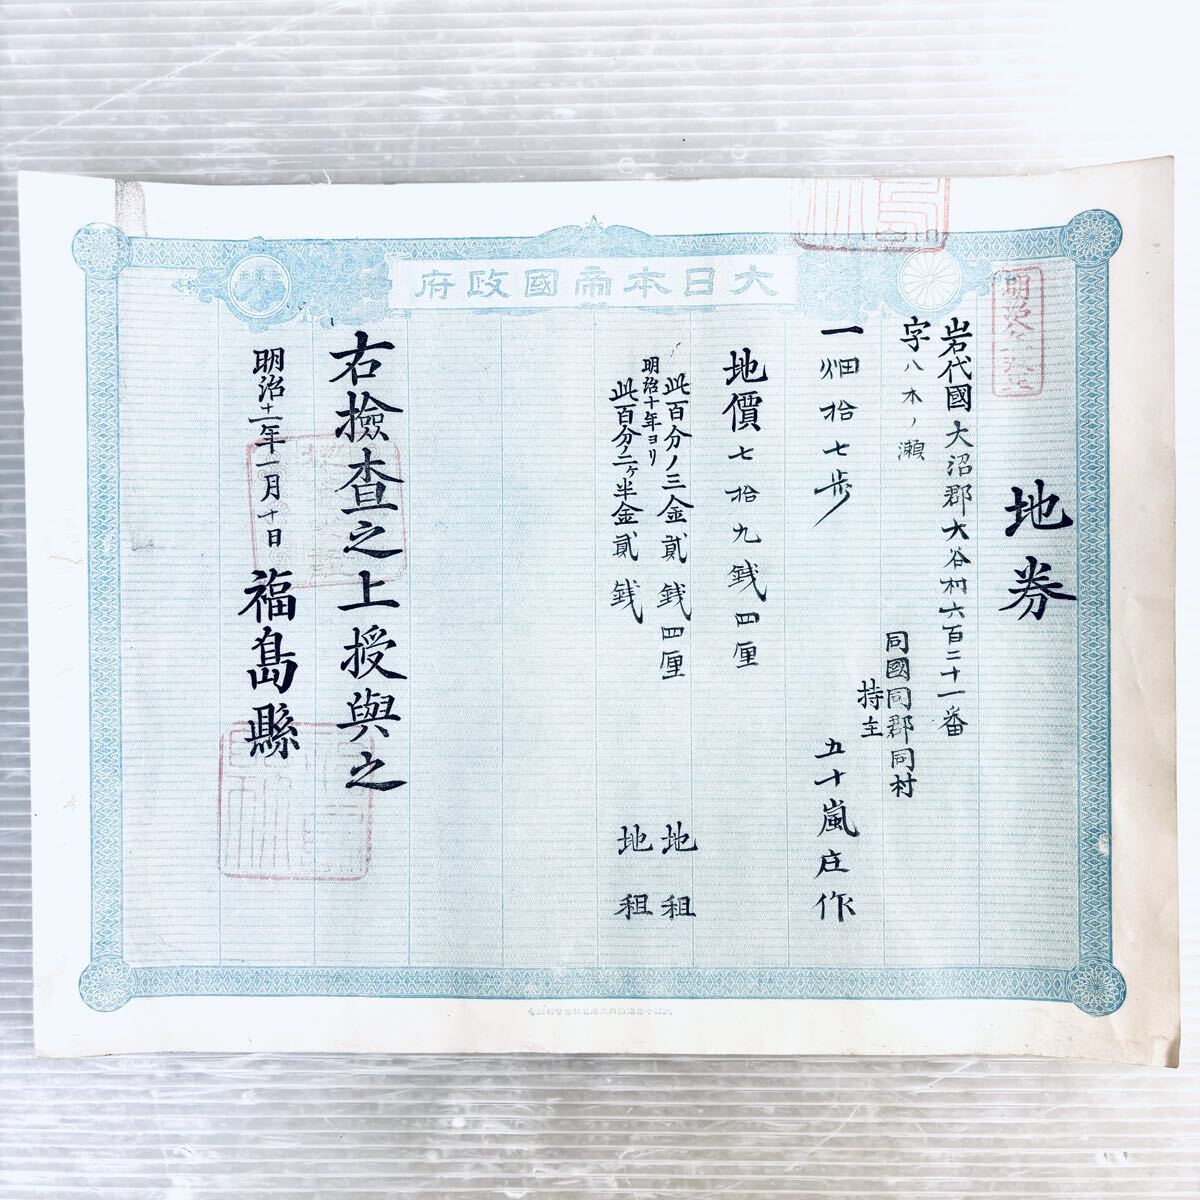 大日本帝國政府
地券
岩代國大沼郡大谷村六百三十一番
字八木ノ瀬
同國同郡同村
持主 五十嵐庄作
一畑拾七歩
地價七拾九銭四厘
此百分ノ三金貳銭四厘 地租
明治十年ヨリ
此百分ノ二ヶ半金貳銭 地租
右撿査之上授與之
明治十一年一月十日 福島縣